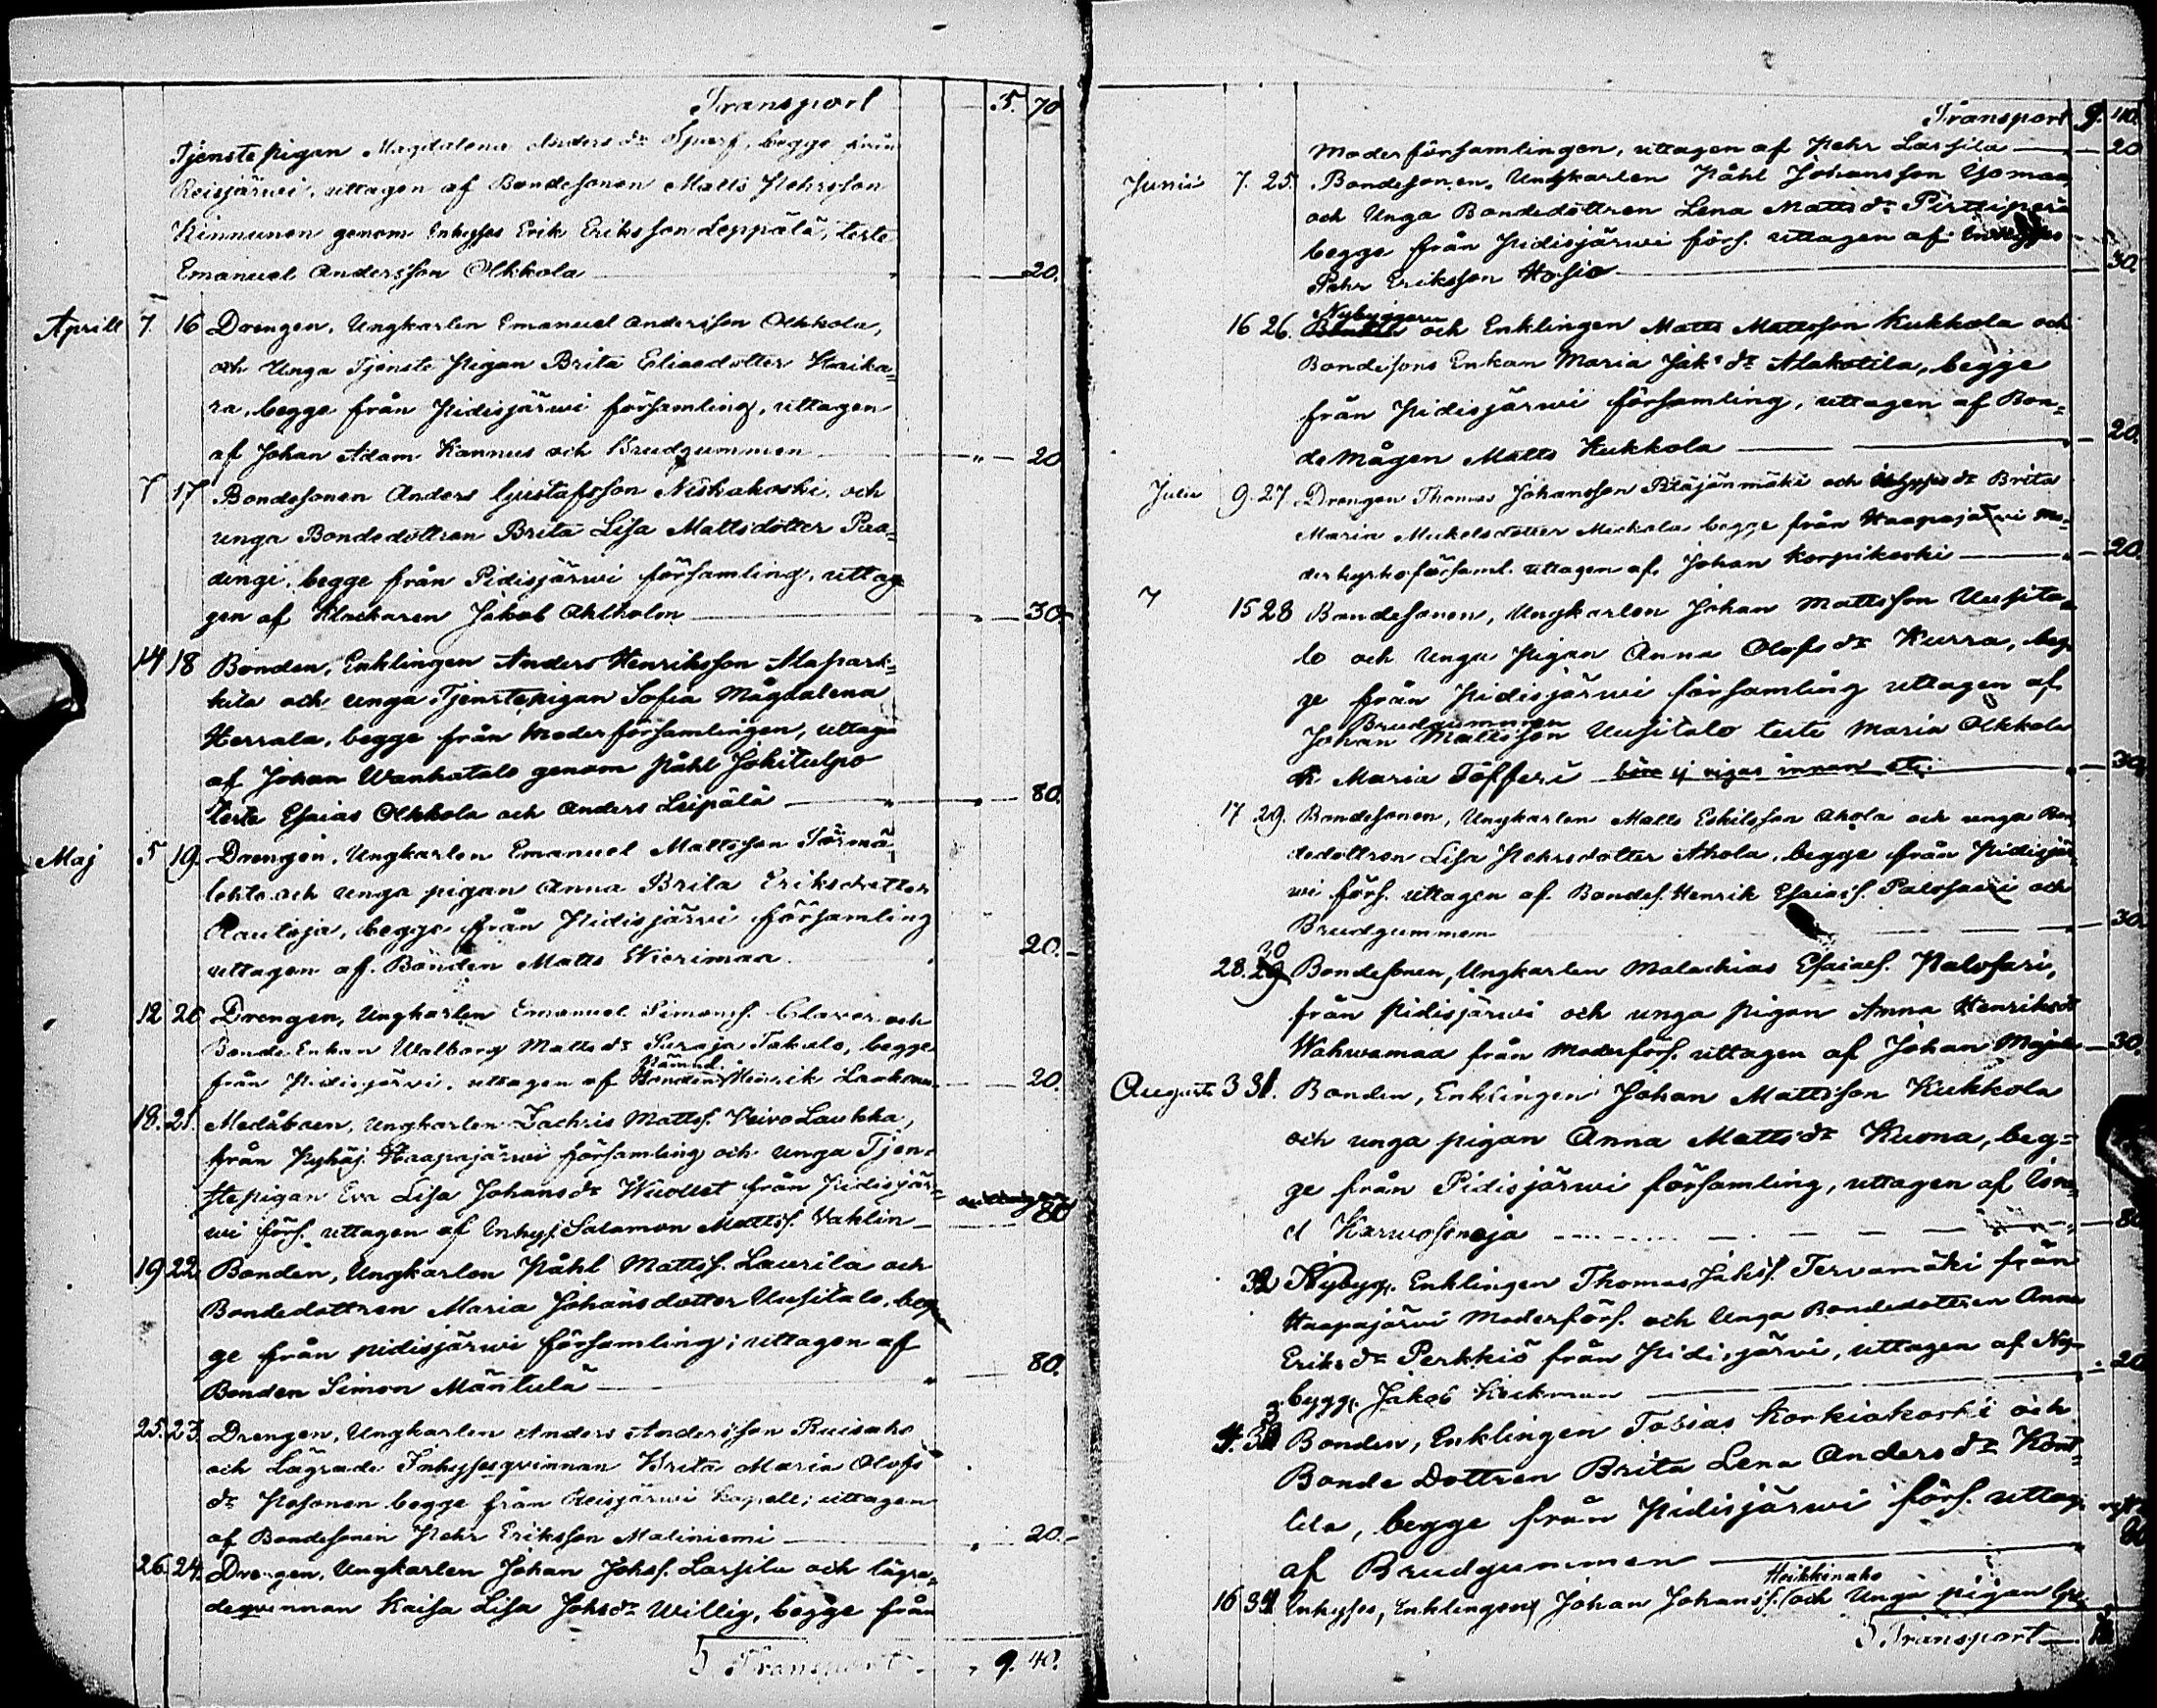 Transport 5. 70
Tjenstepigan Magdalena Anders dr Sparf, begge från
Reisjärwi, uttagen af Bondesonen Matts Pehrsson
Kinnunen genom Inhyses Erik Eriksson Leppälä, teste
Emanuel Andersson Olkkola 20.
Aprill 7. 16 Drengen, Ungkarlen Emanuel Andersson Olkkola,
och Unga Tjenste Pigan Brita Eliaedotter Haika=
ra, begge från Pidisjärwi församling, uttagen
af Johan Adam Kannus och Brudgummen " 20
7 17 Bondesonen Anders Gustafsson Niskakoski, och
unga Bondedottren Brita Lisa Mattsdotter Paa=
dingi, begge från Pidisjärwi församling, uttag
gen af Klockaren Jakob Ahlholm 30
14 18 Bonden, Enklingen Anders Henriksson Alapark=
kila och unga Tjenstepigan Sofia Magdalena
Herrala, begge från Moderförsamlingen, uttagen
af Johan Wanhatalo genom Påhl Jokitulpo
teste Esaias Olkkola och Anders Leipälä 80.
Maj 5 19. Drengen, Ungkarlen Emanuel Mattsson Törmä
lehto och unga pigan Anna Brita Eriksdotter
Rautoja, begge från Pidisjärvi församling
uttagen af Bonden Matts Wierimaa 20.
12 20 Drengen, Ungkarlen Emanuel Simonss. Claver och
Bonde Enkan Walborg Matts dr Suroja Takalo, begge
Nämnd.
från Pidisjärvi, uttagen af Bonden Henrik Laakona 20.
18. 21. Medåboen, Ungkarlen Zachris Mattss. Peivo Laukka,
från Pyhäj. Haapajärwi församling och unga Tjen-
stepigan Eva Lisa Johans dr Wuollet från Pidisjär=
wi förs. uttagen af Inhys. Salamon Mattss. Vahlin 80
19 22. Bonden, Ungkarlen Påhl Mattss. Laurila och
Bondedottren Maria Johansdotter Uusitalo, beg
ge från pidisjärwi församling; uttagen af
Bonden Simon Mäntulä " 80.
25. 23. Drengen, Ungkarlen Anders Andersson Ruisaho
och Lägrade Inhysesqvinnan Brita Maria Olofs
dr Posonen begge från Reisjärwi Kapell; uttagen
af Bondesonen Pehr Eriksson Maliniemi 20.
26. 24. Drengen, Ungkarlen Johan Johss. Lassila och lägra=
deqvinnan Kaisa Lisa Johs dr Willig, begge från
Transport 9. 40.
Transport 9. 40.
Moderförsamlingen, uttagen af Pehr Lassila 20
Junii 7. 25. Bondesonen, Ungkarlen Påhl Johansson Yomaa
och Unga Bondedottren Lena Matts dr Pirttiperä
begge från Pidisjärwi förs. uttagen af
Pehr Eriksson Hosio 30.
Nybyggaren
16 26. och Enklingen Matts Mattsson Kukkola och
Bondesons Enkan Maria Jak. dr Alakotila, begge
från Pidisjärwi församling, uttagen af Bon=
de Mågen Matts Kukkola 20.
Julii 9. 27. Drengen Thomas Johansson Pitäjänmäki och Inhyses dr Brita
Maria Mickelsdotter Mickola begge från Haapajärwi mo=
derkyrkoförsaml. uttagen af Johan Korpikoski 20.
7 15 28 Bondesonen, Ungkarlen Johan Mattsson Uusita=
lo och Unga pigan Anna Olofs dr Kurra, beg=
ge från Pidisjärwi församling uttagen af
Brudgummen
Johan Mattsson Uusitalo teste Maria Olkkola
& Maria Töfferi böra ej vigas innan etc. 30.
17 29. Bondesonen, Ungkarlen Matts Eskilsson Ahola och unga Bon
dedottren Lisa Pehrsdotter Ahola, begge från Pidisjär
wi förs. uttagen af Bondes. Henrik Esaiass. Palosaari och
Brudgummen 30.
28. 30 Bondesonen, Ungkarlen Malachias Esaiass. Palosari,
från Pidisjärwi och unga pigan Anna Henriks dr
Wahwamaa från Moderförs. uttagen af Johan Majala 30.
Augusti 3 31. Bonden, Enklingen Johan Mattsson Kukkola
och unga pigan Anna Matts dr Kuona, beg=
ge från Pidisjärwi församling, uttagen af Isra=
el Karwosenoja 80
32 Nybygg. Enklingen Thomas Jakss. Tervamäki från
Haapajärvi Moderförs. och Unga Bondedottren Anna
Eriks dr Perkkiö från Pidisjärvi, uttagen af Ny=
bygg. Jakob Kiekman 20
4. 33 Bonden, Enklingen Tobias Korkiakoski och
Bonde Dottren Brita Lena Anders dr Kont=
tila, begge från Pidisjärwi förs. uttag.
af Brudgummen
Heikkinaho
16 34 Inhyses, Enklingen Johan Johanss. och Unga pigan
Transport